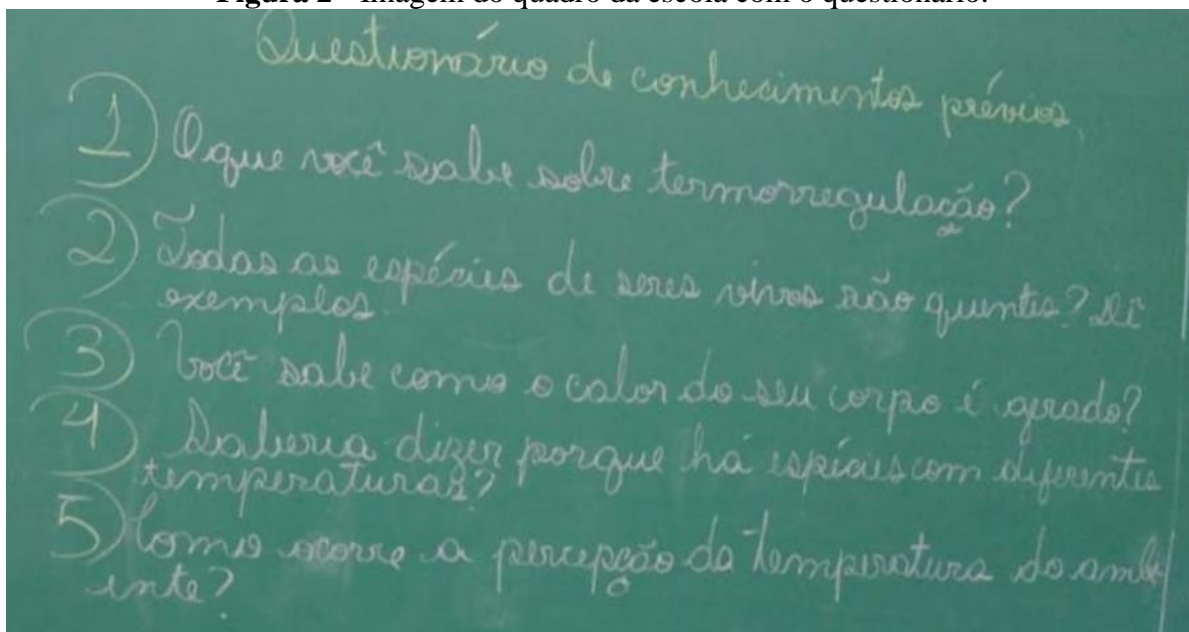 Figura 2 - Imagem do quadro da escola com o questionário.
Questionário de conhecimentos prévios
1) O que você sabe sobre termorregulação?
2) Todas as espécies de seres vivos são quentes? Dê
exemplos.
3) Você sabe como o calor do seu corpo é gerado?
4) Saberia dizer porque há espécies com diferentes
temperaturas?
5) Como ocorre a percepção da temperatura do ambi
ente?